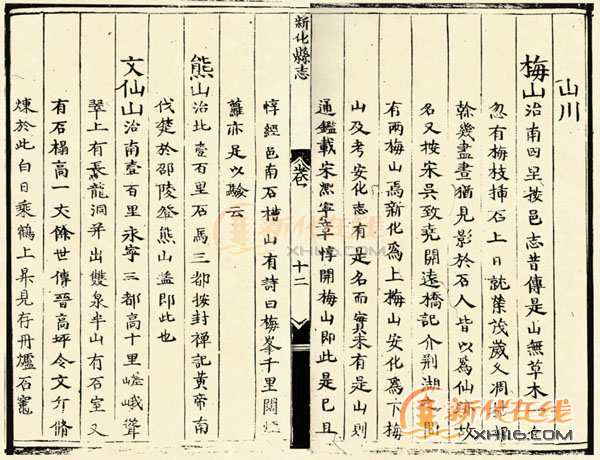 山川
梅山治南四里按邑志昔傳是山無草木一
忽有梅枝挿石上日就葉茂歲久凋
幹幾盡晝猶見影於石人皆以爲仙跡故
名又按宋吳致堯開遠橋記介荆湖之間
有兩梅山焉新化爲上梅山安化爲下梅
山及考安化志有是名而實未有是山則
通鑑載宋熙寧章惇開梅山即此是已且
新化縣志
十二
惇經邑南石槽山有詩曰梅峯千里闊煙
蘿亦足以驗云
熊山治北壹百里石馬三都按封禪記黃帝南
伐楚於邵陵登熊山葢即此也
文仙山治南壹百里永寧三都高十里嵯峨聳
翠上有長龍洞并出雙泉半山有石室又
有石榻高一丈餘世傳晉高坪令文斤脩
煉於此白日乘鶴上昇見存丹爐石竈
新化在线